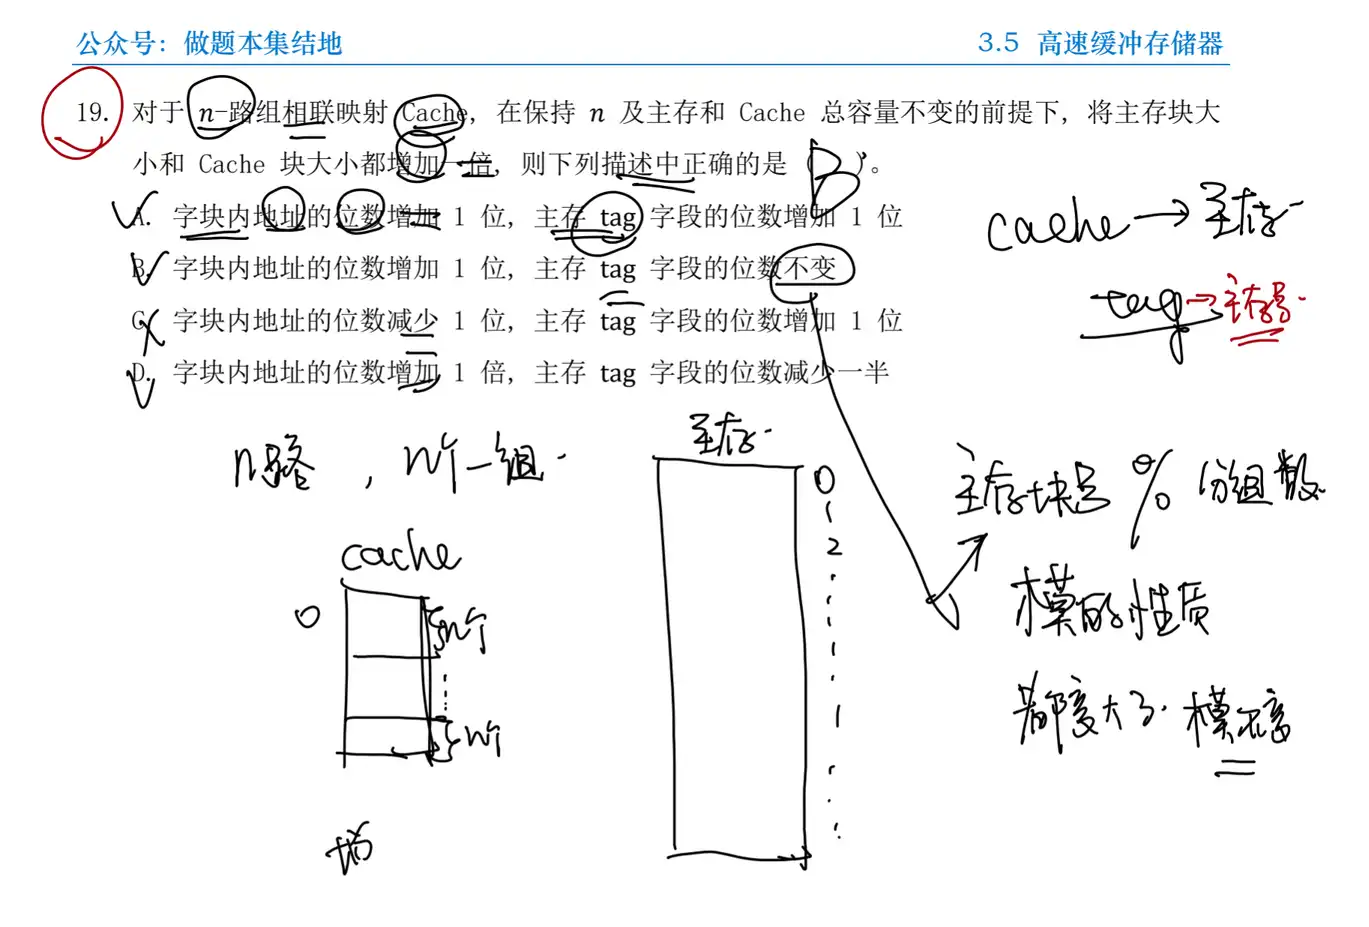 公众号：做题本集结地
3.5 高速缓冲存储器
19. 对于 n-路组相联映射 Cache，在保持 n 及主存和 Cache 总容量不变的前提下，将主存块大
小和 Cache 块大小都增加一倍，则下列描述中正确的是（B）。
A. 字块内地址的位数增加 1 位，主存 tag 字段的位数增加 1 位
B. 字块内地址的位数增加 1 位，主存 tag 字段的位数不变
C. 字块内地址的位数减少 1 位，主存 tag 字段的位数增加 1 位
D. 字块内地址的位数增加 1 倍，主存 tag 字段的位数减少一半
cache → 主存
tag →
n路，n个一组
cache
0
n个
n个
主存
0
1
2
1
主存块号 % 分组数
模的性质
都变大了 模不变